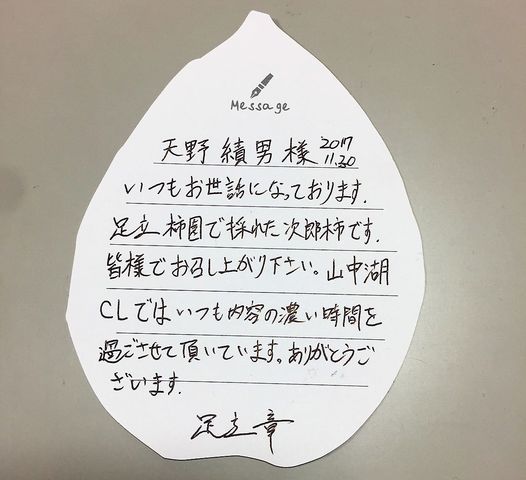 Message
天野 績男 様 2017
11.30
いつもお世話になっております.
足立 柿園で採れた次郎柿です.
皆様でお召し上がり下さい。山中湖
CLではいつも内容の濃い時間を
過ごさせて頂いています。ありがとうご
ざいます.
足立 章